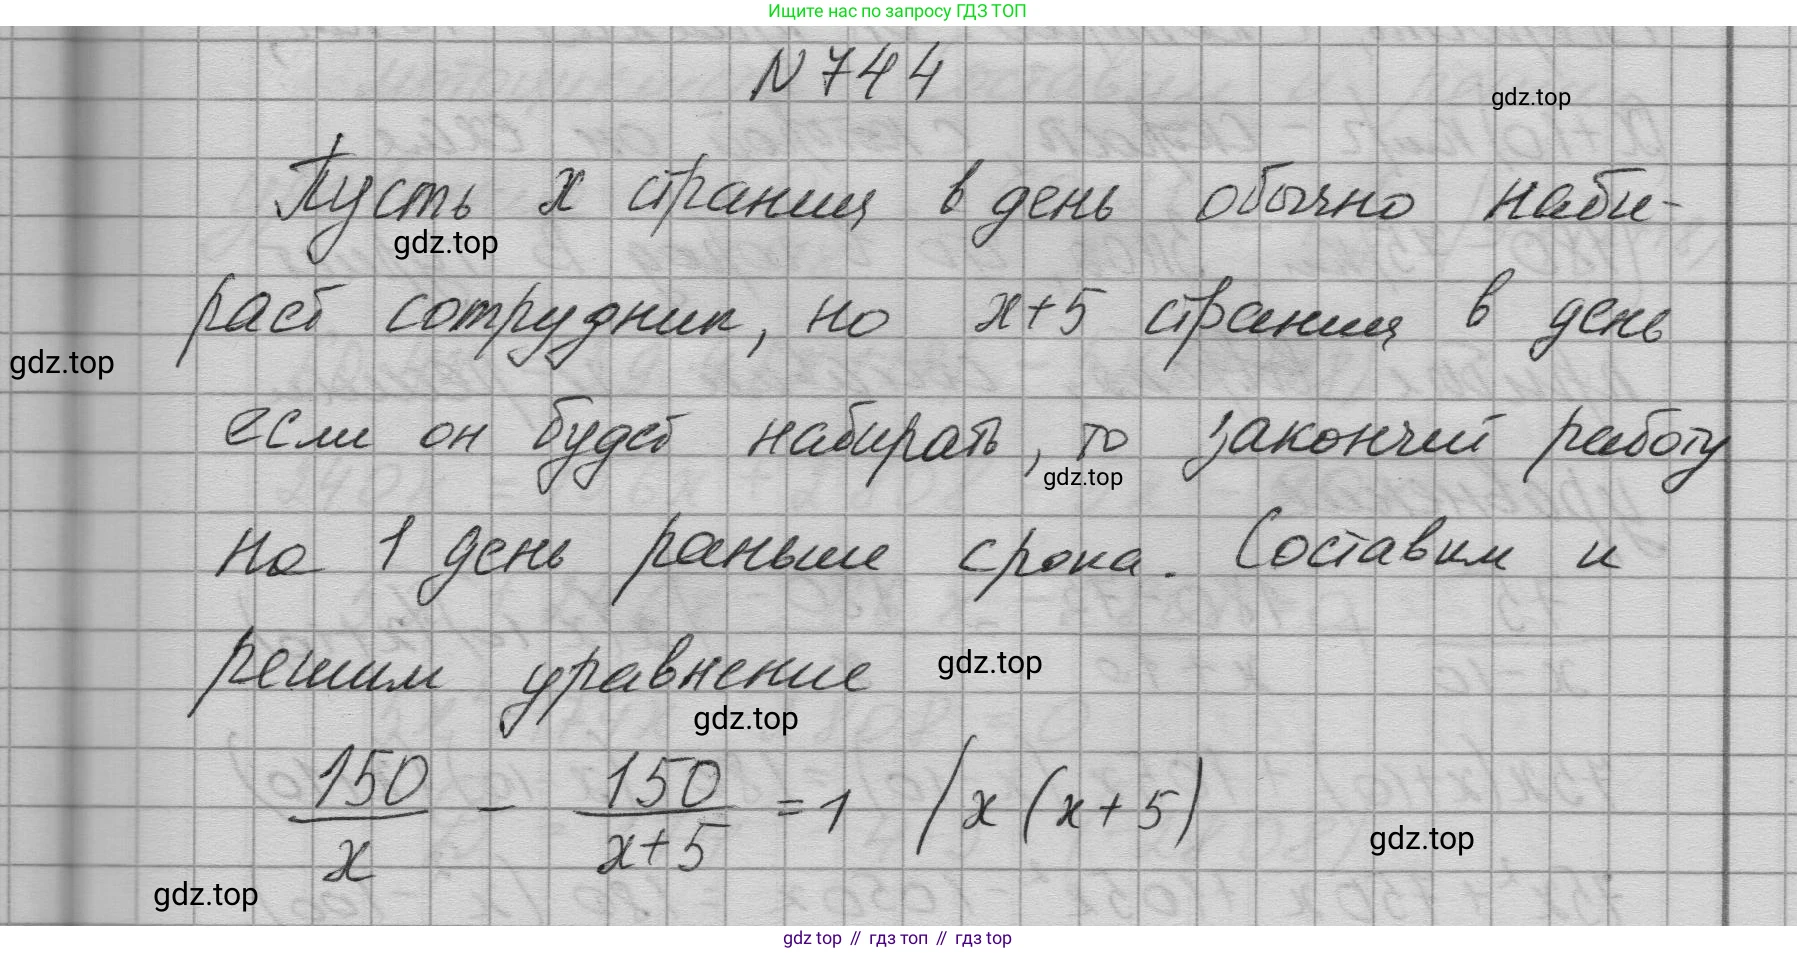 Ищите нас по запросу ГДЗ ТОП
N 744
gdz.top
Пусть x страниц в день обычно наби-
gdz.top
рает сотрудник, но x+5 страниц в день
gdz.top
если он будет набирать, то закончит работу
gdz.top
на 1 день раньше срока. Составим и
решим уравнение
gdz.top
gdz.top
150/x - 150/(x+5) = 1 / x (x+5)
gdz.top
gdz.top
gdz top // гдз топ // гдз top